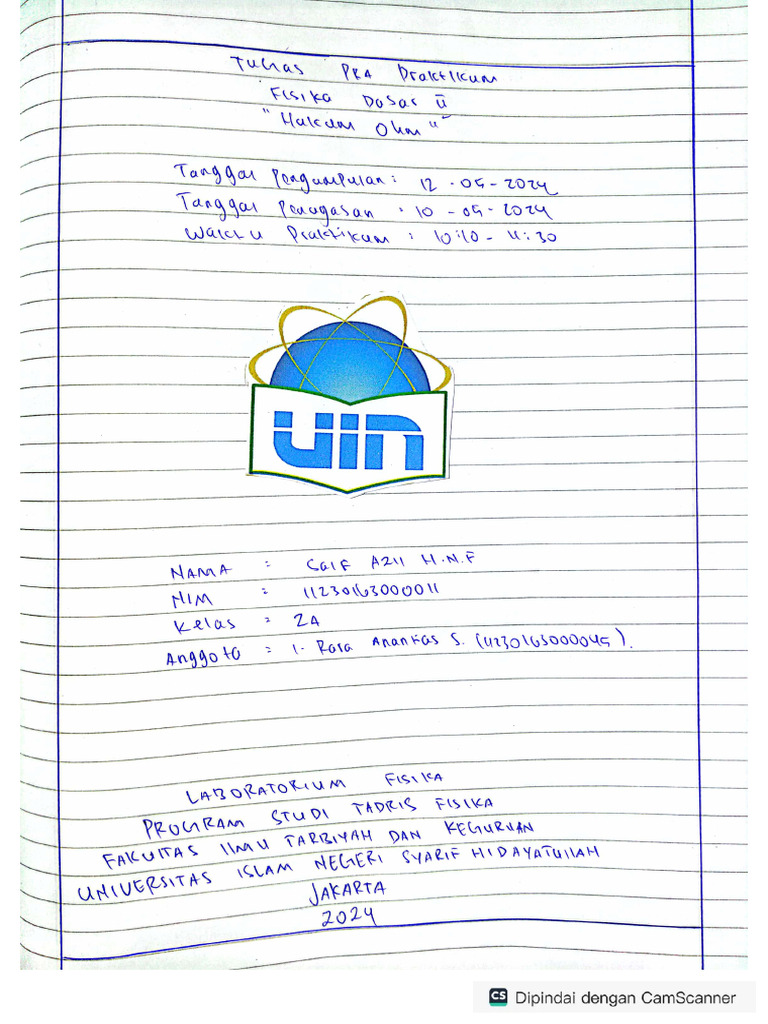 Tugas PRA Praktikum
Fisika Dasar II
"Hukum Ohm"
Tanggal Pengumpulan : 12 - 05 - 2024
Tanggal Penugasan : 10 - 05 - 2024
Waktu Praktikum : 10:10 - 11:30
UIN
NAMA : Saif Azil H.N.F
NIM : 11230163000011
Kelas : 2A
Anggota : 1. Rasa Anantias S. (11230163000045).
LABORATORIUM FISIKA
PROGRAM STUDI TADRIS FISIKA
FAKULTAS ILMU TARBIYAH DAN KEGURUAN
UNIVERSITAS ISLAM NEGERI SYARIF HIDAYATULLAH
JAKARTA
2024
CS Dipindai dengan CamScanner